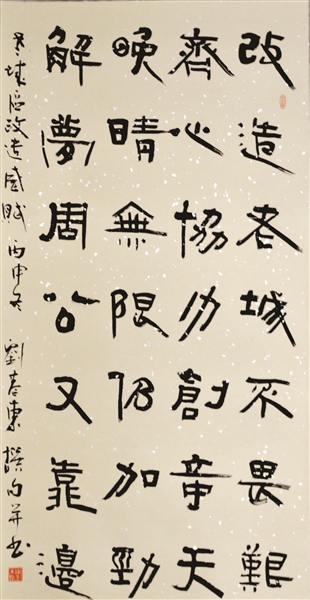 改造老城不畏艱
齊心協力創天
晚晴無限仍加勁
解夢周公又靠邊
老城區改造感賦 丙申冬 劉春東 撰句并书